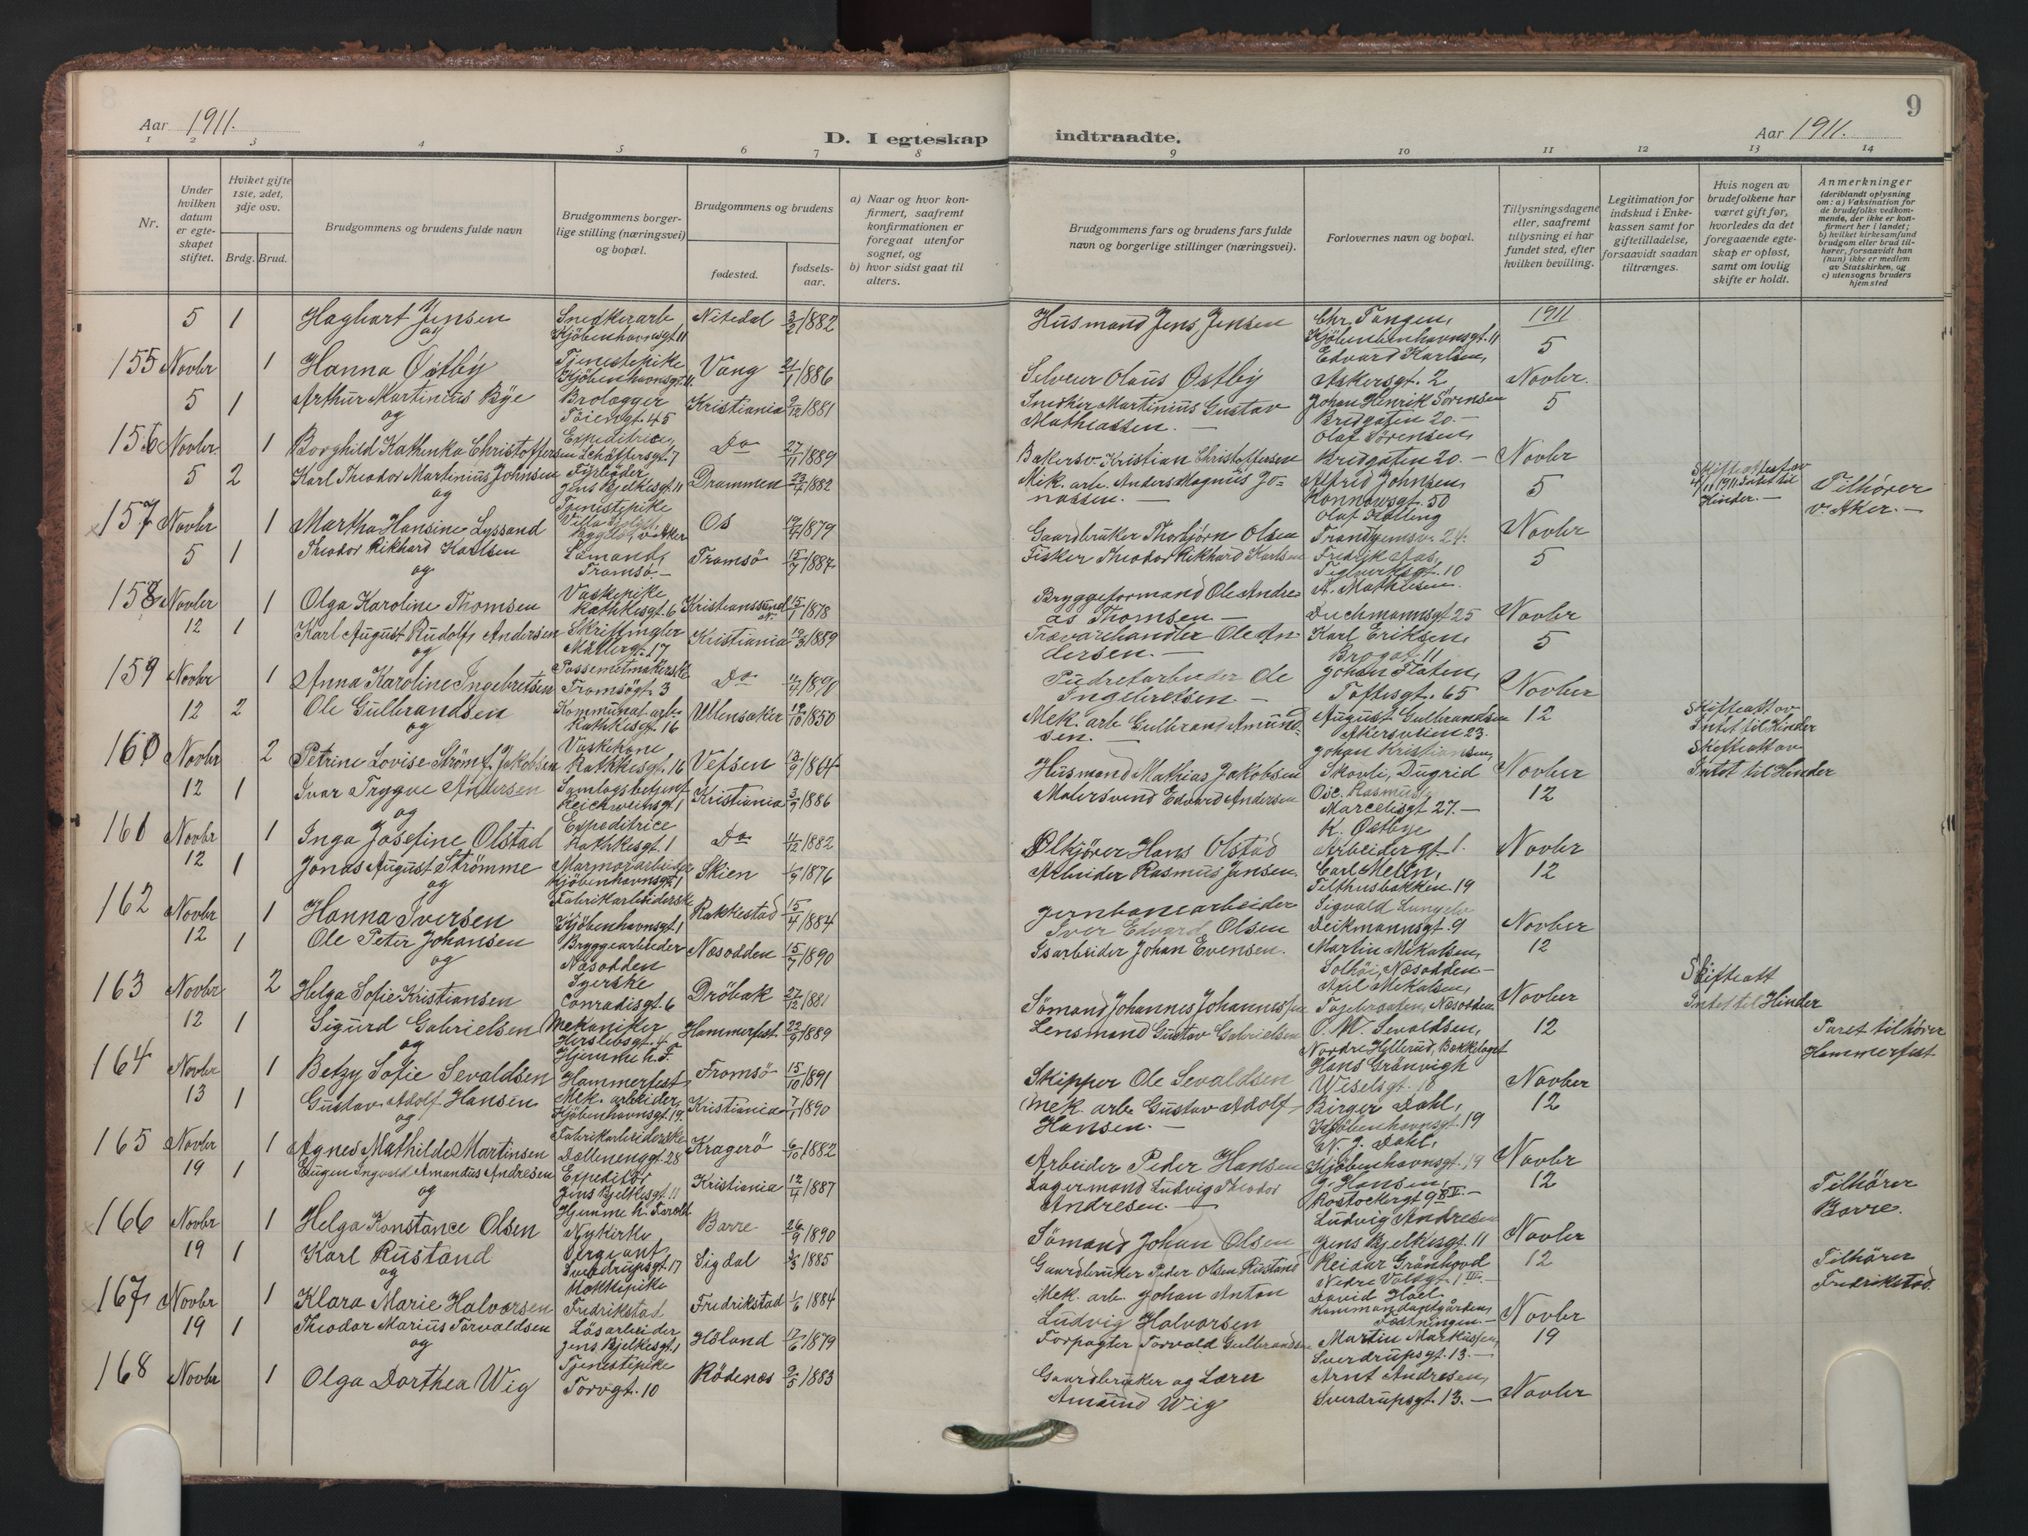 9
Aar 1911.
D. I egteskap indtraadte.
Aar 1911.
1 2 3 4 5 6 7 8 9 10 11 12 13 14
Nr.
Under hvilken datum er egteskapet stiftet.
Hviket gifte 1ste, 2det, 3dje osv.
Brdg. Brud.
Brudgommens og brudens fulde navn
Brudgommens borgerlige stilling (næringsvei) og bopæl.
Brudgommens og brudens
fødested.
fødselsaar.
a) Naar og hvor konfirmert, saafremt konfirmationen er foregaat utenfor sognet, og
b) hvor sidst gaat til alters.
Brudgommens fars og brudens fars fulde navn og borgerlige stillinger (næringsvei).
Forlovernes navn og bopæl.
Tillysningsdagene eller, saafremt tillysning ei har fundet sted, efter hvilken bevilling.
Legitimation for indskud i Enkekassen samt for giftetilladelse, forsaavidt saadan tiltrænges.
Hvis nogen av brudefolkene har været gift før, hvorledes da det foregaaende egteskap er opløst, samt om lovlig skifte er holdt.
Anmerkninger (deriblandt oplysning om: a) Vaksination for de brudefolks vedkommende, der ikke er konfirmert her i landet; b) hvilket kirkesamfund brudgom eller brud tilhører, forsaavidt han (hun) ikke er medlem av Statskirken, og c) utensogns bruders hjemsted
5 1 Haghart Jensen Snedkerarb Kjöbenhavnsgt 11 Nitedal 3/2 1882 Husmand Jens Jensen Chr. Tangen, Kjöbenhavnsgt. 11 1911 5
og
155 Novbr 1 Hanna Østby Tjenestepike Kjöbenhavnsgt. 11. Vang 21/1 1886 Selveier Olaus Østby Edvard Karlsen, Akersgt. 2 Novbr.
5 1 Arthur Martinius Bÿe Brolægger Töiengt. 45 Kristiania 9/12 1881 Snedker Martinius Gustav Mathiassen. — Johan Henrik Sørensen Bredgaten 20. — 5
og
156 Novbr 1 Borghild Kathinka Christoffersen Expeditrice, Schöttersgt. 7 Do 27/11 1889 Bakersv. Kristian Christoffersen Olaf Sørensen, Bredgaten 20. — Novbr
5 2 Karl Theodor Martinius Johnsen Fÿrböder Jens Bjelkesgt. 11 Drammen 1882 Mik. arb. Anders Magnus Jonassen. — Alfred Johnsen, Konnowsgt. 50 5 Skifteattest av 4/11 1911 Intet til Hinder. — Tilhører V. Aker. —
og
157 Novbr 1 Martha Hansine Lyssand Tjenestepike Villa Bygdö V. Aker Os 1879 Gaardbruker Thorbjörn Olsen Olaf Kolling Trondhjemsv. 24. Novbr
5 1 Theodor Rikhard Karlsen Sömand, Tromsö. — Tromsö 15/7 1887 Fisker Theodor Rikhard Karlsen Fredrik Aas, Teglverksgt. 10 5
og
158 Novbr 1 Olga Karoline Thomsen Vaskepike Rathkesgt. 6 Kristianssund N. 15/1 1878 Bryggeformand Ole Andreas Thomsen — A. Mathiesen Duchmannsgt 25 Novbr
12 1 Karl August Rudolf Andersen Skriftingler Möllergt. 17 Kristiania 1889 Trævarehandler Ole Andersen. — Karl Eriksen, Brogat. 11 5
og
159 Novbr 1 Anna Karoline Ingebretsen Possementmakerske Tromsögt. 3 Do 1890 Pudretarbeider Ole Ingebretsen — Johan Flaten, Toftesgt. 65 Novber
12 2 Ole Gulbrandsen Kommunat arb. Rathkesgt. 16 Ullensaker 19/10 1850 Mek. arb. Gulbrand Amundsen. — August Gulbrandsen Akersveien 23. 12 Skifteatt av Intet til Hinder
og
160 Novbr 2 Petrine Lovise Strøm f. Jakobsen Vaskekone Rathkesgt. 16 Vefsen 1864 Husmand Mathias Jakobsen Johan Kristiansen, Skovli, Dugrid Novber Skifteatt av Intet til Hinder
12 1 Ivar Trygve Andersen Samlagsbetjent Reichweinsgt. 1 Kristiania 3/9 1886 Malersvend Edvard Andersen Osc. Rasmus Marcelisgt 27. — 12
og
161 Novbr 1 Inga Josefine Olstad Expeditrice Rathkesgt. 1 Do 1882 Ølkjörer Hans Olstad K. Østbye Arbeidergt. 1. Novbr
12 1 Jonas August Strømme Marmorarbeider Kjöbenhavnsgt. 1 Skien 1/9 1876 Arbeider Rasmus Jensen. Carl Melin, Telthusbakken. 19 12
og
162 Novbr 1 Hanna Iversen Fabrikarbeiderske Kjöbenhavnsgt. 1 Rakkestad 15/4 1884 Jernbanearbeider Iver Edvard Olsen Sigvald Deikmannsgt. 9 Novber
12 1 Ole Peter Johansen Bryggearbeider Næsodden Næsodden 15/7 1890 Isarbeider Johan Evensen. Martin Mikalsen, Solhöi, Næsodden — 12
og
163 Novbr 2 Helga Sofie Kristiansen Syerske Conradisgt. 6 Dröbak 27/12 1881 Sömand Johannes Johannesen Axel Mikalsen, Næsodden Novber Skifteatt Intet til Hinder
12 1 Sigurd Gabrielsen Mekaniker Herslebsgt. 4 Hjemme h. F. Hammerfest 22/9 1889 Lensmand Gustav Gabrielsen O. M. Sevaldsen, Nordre Hyllerud, Bækkelaget 12 Paret tilhører Hammerfest
og
164 Novbr 1 Betzy Sofie Sevaldsen Hammerfest Tromsö 15/10 1891 Skipper Ole Sevaldsen Hans Grönvigh Wiselsgt. 18 Novber
13 1 Gustav Adolf Hansen Mek. arbeider, Kjöbenhavnsgt. 19. Kristiania 7/1 1890 Mek. arb. Gustav Adolf Hansen. — Birger Dahl, Kjöbenhavnsgt. 19 12
og
165 Novbr 1 Agnes Mathilde Martinsen Fabrikarbeiderske Dællenenggt. 28 Kragerö 6/10 1882 Arbeider Peder Hansen N. J. Dahl, Kjöbenhavnsgt. 19 Novbr
19 1 Eugen Ingvald Amandus Andresen Expeditör Jens Bjelkesgt. 11 Kristiania 12/4 1887 Lagermand Ludvig Theodor Andresen — J. Hansen, Rostockergt 9 II. — 12 Tilhører Borre.
og
166 Novbr 1 Helga Konstance Olsen Hjemme h. Farold Nykirke Borre 26/9 1890 Sömand Johan Olsen Ludvig Andresen Jens Bjelkesgt. 11 Novber
19 1 Karl Rustand Sergeant, Sverdrupsgt. 17 Sigdal 1885 Gaardbruker Peder Olsen Rustand Reidar Grönhovd Nedre Voldsgt. 1 III. — 12 Tilhører Fredrikstad.
og
167 Novbr 1 Klara Marie Halvorsen Kokkepike Fredrikstad Fredrikstad 1/6 1884 Mek. arb. Johan Anton Ludvig Halvorsen David Hoel, Kommandantgården, Fæstningen — Novber
19 1 Theodor Marius Torvaldsen Lösarbeider Jens Bjelkesgt. 1 Idsland 17/6 1879 Forpagter Torvald Gulbrandsen Martin Markussen, Sverdrupsgt. 13. — 19
og
168 Novbr 1 Olga Dorthea Wig Tjenestepike Torvgt. 10 Rödenæs 9/5 1883 Gaardbruker og Lærer Amund Wig Arnt Andresen, Sverdrupsgt. 13. — Novbr